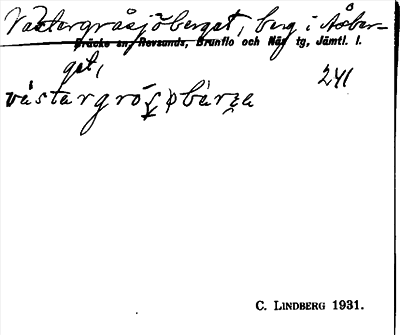 Västergråsjöberget, berg i Åsber-
Bräcke sn, Revsunds, Brunflo och Näs tg, Jämtl. l.
get,
241
västargrós̯øbárga
C. LINDBERG 1931.